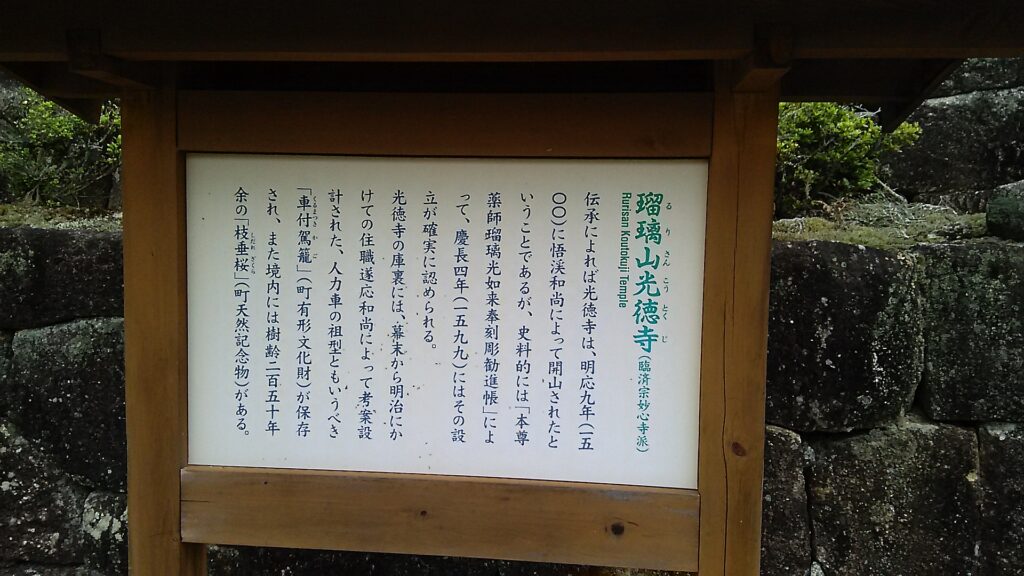 瑠璃山光徳寺(臨済宗妙心寺派)
るりさんとうとくじ
Rurisan Koutokuji Temple
伝承によれば光徳寺は、明応九年(一五
〇〇)に悟渓和尚によって開山されたと
いうことであるが、史料的には「本尊
薬師瑠璃光如来奉刻彫勧進帳」によ
って、慶長四年(一五九九)にはその設
立が確実に認められる。
光徳寺の庫裏には、幕末から明治にか
けての住職遂応和尚によって考案設
計された、人力車の祖型ともいうべき
「車付駕籠」(町有形文化財)が保存
くるまつきかご
され、また境内には樹齢二百五十年
余の「枝垂桜」(町天然記念物)がある。
しだれざくら